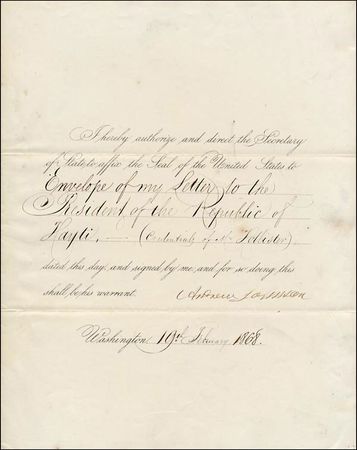 I hereby authorize and direct the Secretary
of State to affix the Seal of the United States to
Envelope of my Letter to the
President of the Republic of
Hayti, (Credentials of Mr Hollister)
dated this day, and signed by me, and for so doing this
shall be his warrant.
Andrew Johnson
Washington, 19th February 1868.